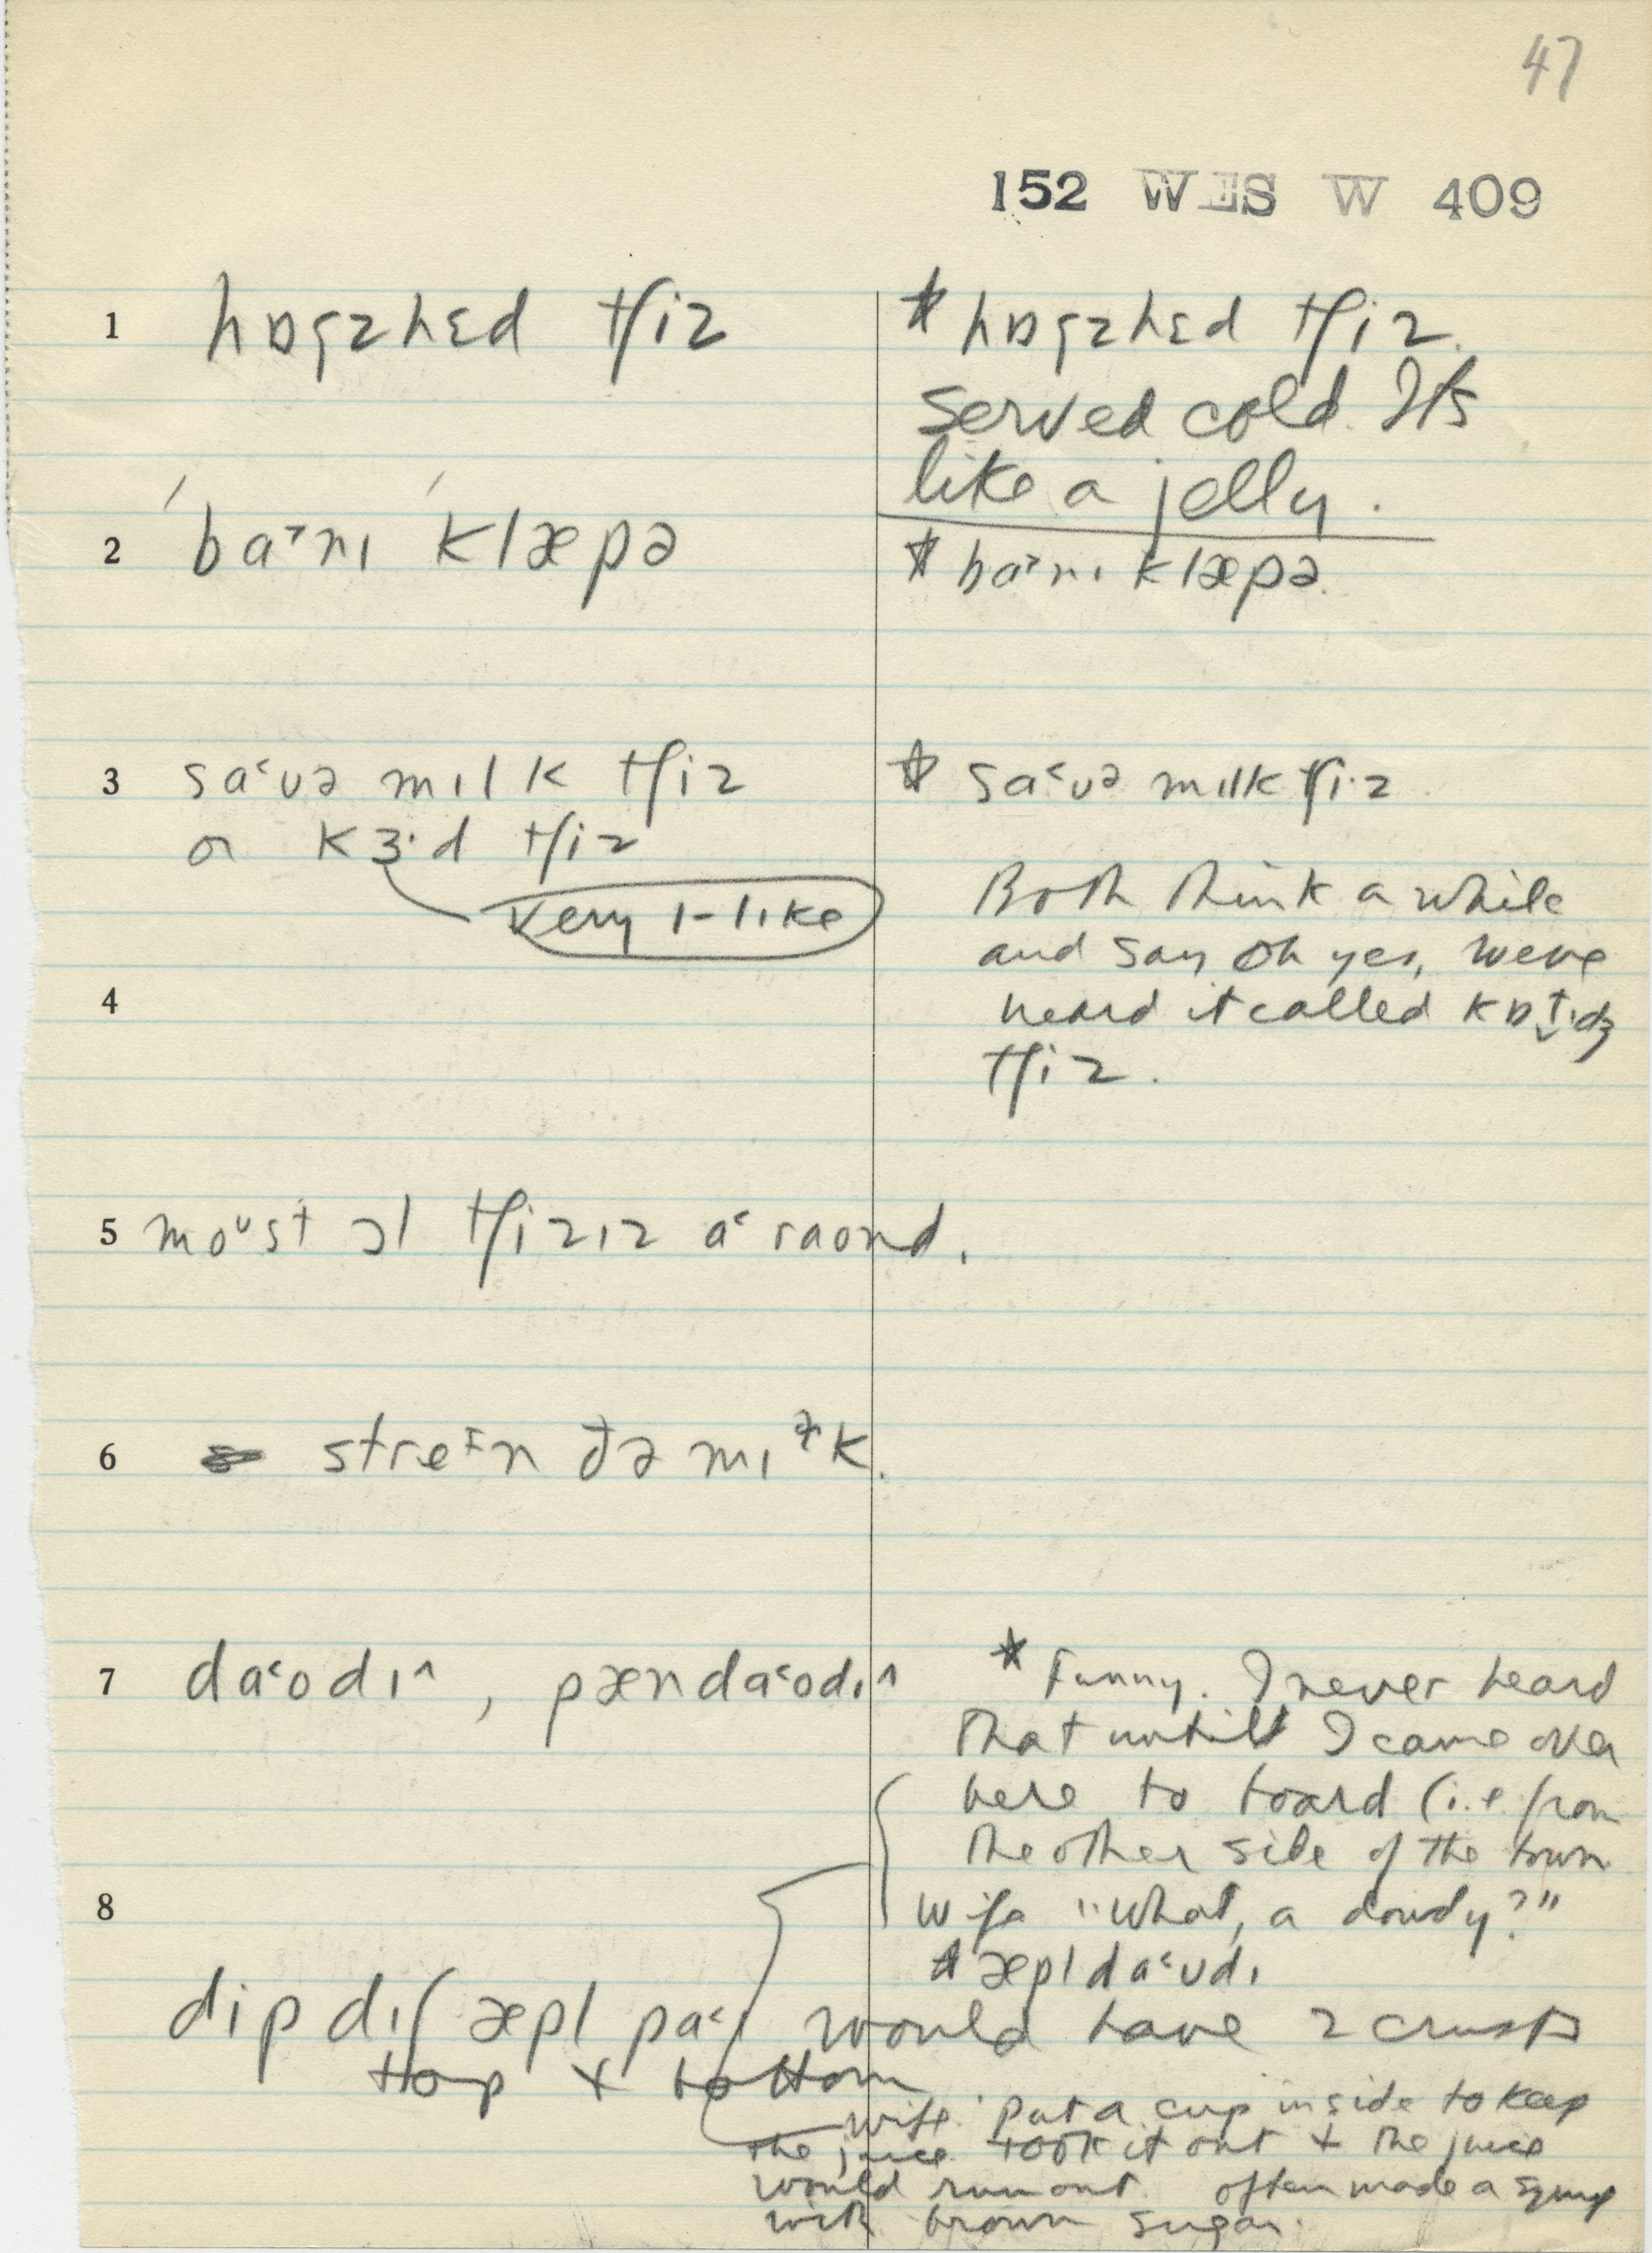 47
152 WES W 409
1 hɒgzhɛd tʃiz
* hɒgzhɛd tʃiz.
served cold. It's
like a jelly.
2 ˈba˃nɪ ˈklæpə
* ba˃nɪ klæpə.
3 sa˂ʊə mɪlk tʃiz
* sa˂ʊə mɪlk tʃiz
or kɜ·d tʃiz
very ɪ-like
Both think a while
and say Oh yes, we've
4
heard it called
tʃiz.
5 moᶷst ɔl tʃizɪz a˂raond.
6 streɪn ðə mɪɫk.
7 da˂odɪ^, pænda˂odɪ^
* Funny. I never heard
that until I came over
here to board (i.e. from
the other side of the town
8
Wife "What, a dowdy?"
* æpl da˂ʊdɪ
dip dɪʃ æpl pa˂ɪ would have 2 crusts
top + bottom
wife. put a cup inside to keep
the juice. took it out + the juice
would run out. often made a syrup
with brown sugar.